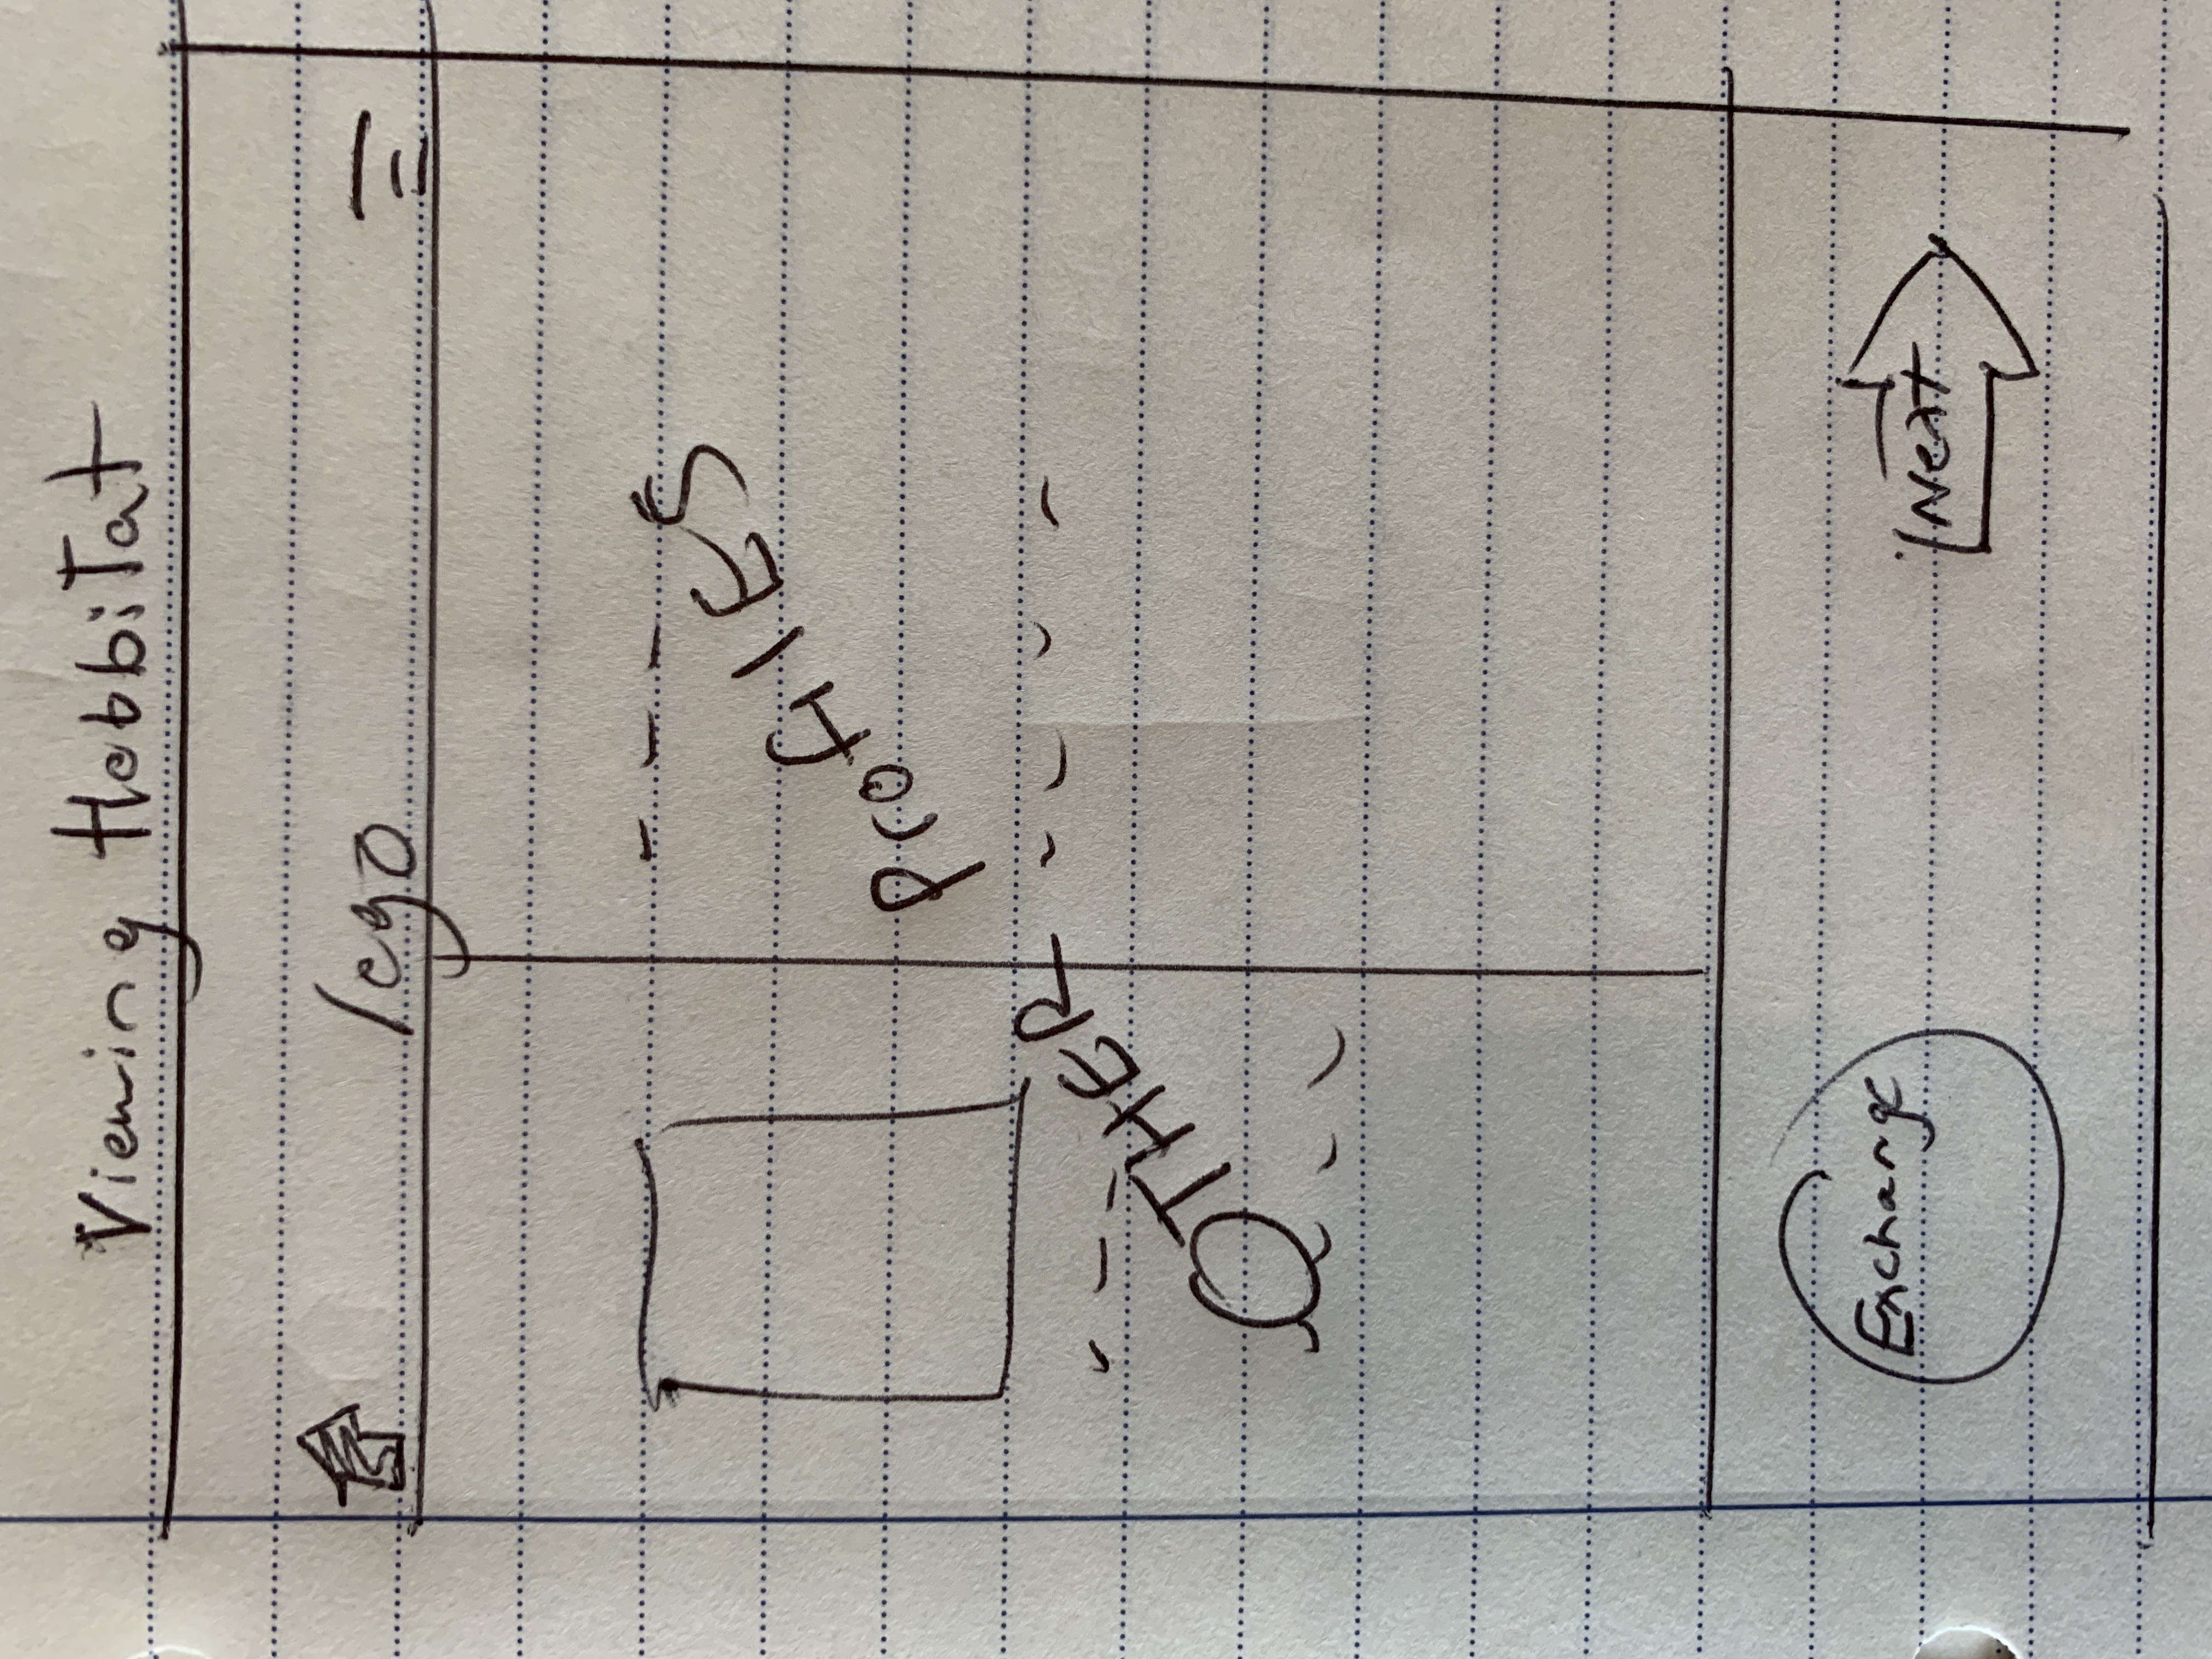 Viewing HobbiTat
lego
OTHER ProfilES
Exchange
Next